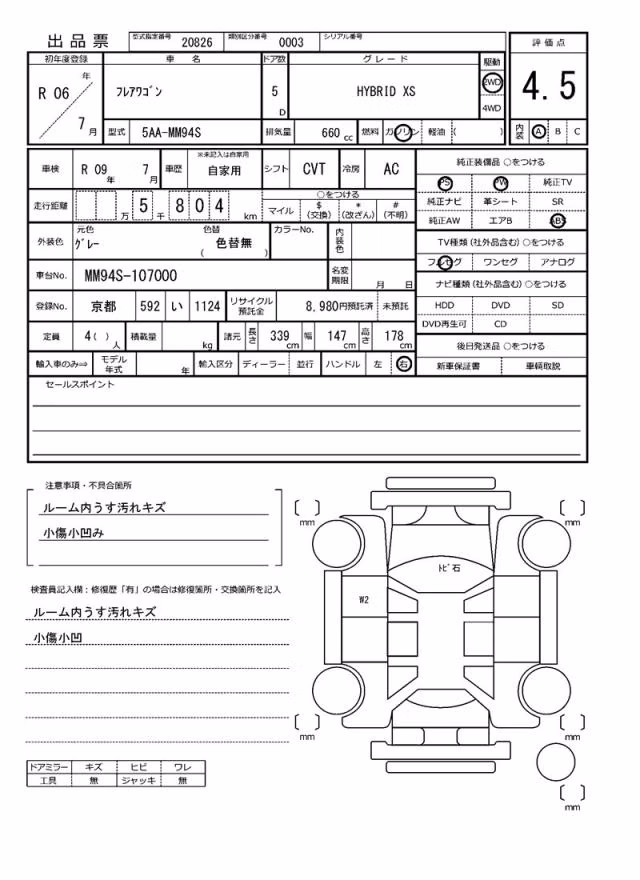 出品票 型式指定番号 20826 類別区分番号 0003 シリアル番号
評価点
初年度登録 車名 ドア数 グレード 駆動
R 06 年 7 月 フレアワゴン 5 D HYBRID XS 2WD 4WD
4.5
型式 5AA-MM94S 排気量 660 cc 燃料 ガソリン 軽油 ( )
内装 A B C
車検 R 09 年 7 月 車歴 ※未記入は自家用 自家用 シフト CVT 冷房 AC
純正装備品 ○をつける
PS PW 純正TV
走行距離 万 5 千 8 0 4 km
○をつける
マイル $ (交換) * (改ざん) # (不明)
純正ナビ 革シート SR
純正AW エアB ABS
外装色 元色 グレー 色替 ( 色替無 ) カラーNo. 内装色
TV種類 (社外品含む) ○をつける
フルセグ ワンセグ アナログ
車台No. MM94S-107000 名変期限 月 日
ナビ種類 (社外品含む) ○をつける
登録No. 京都 592 い 1124 リサイクル預託金 8,980円預託済 未預託
HDD DVD SD
DVD再生可 CD
定員 4( )人 積載量 kg 諸元 長さ 339 cm 幅 147 cm 高さ 178 cm
後日発送品 ○をつける
輸入車のみ⇒ モデル年式 年 輸入区分 ディーラー 並行 ハンドル 左 右
新車保証書 車輌取説
セールスポイント
注意事項・不具合箇所
ルーム内うす汚れキズ
小傷小凹み
検査員記入欄：修復歴「有」の場合は修復箇所・交換箇所を記入
ルーム内うす汚れキズ
小傷小凹
ドアミラー キズ ヒビ ワレ
工具 無 ジャッキ 無
mm
mm
トビ石
W2
mm
mm
mm